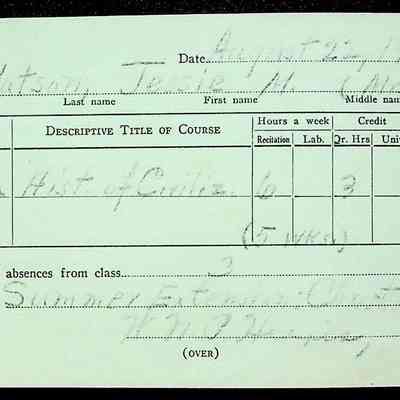 Date August 22, 19
Watson, Jessie M.
Last name First name Middle nam
Descriptive Title of Course Hours a week Credit
Recitation Lab. Qr. Hrs Uni
Hist. of Civiliz. 6 3
(5 wks)
absences from class 3
Summer Extension
W. N. P.
(OVER)